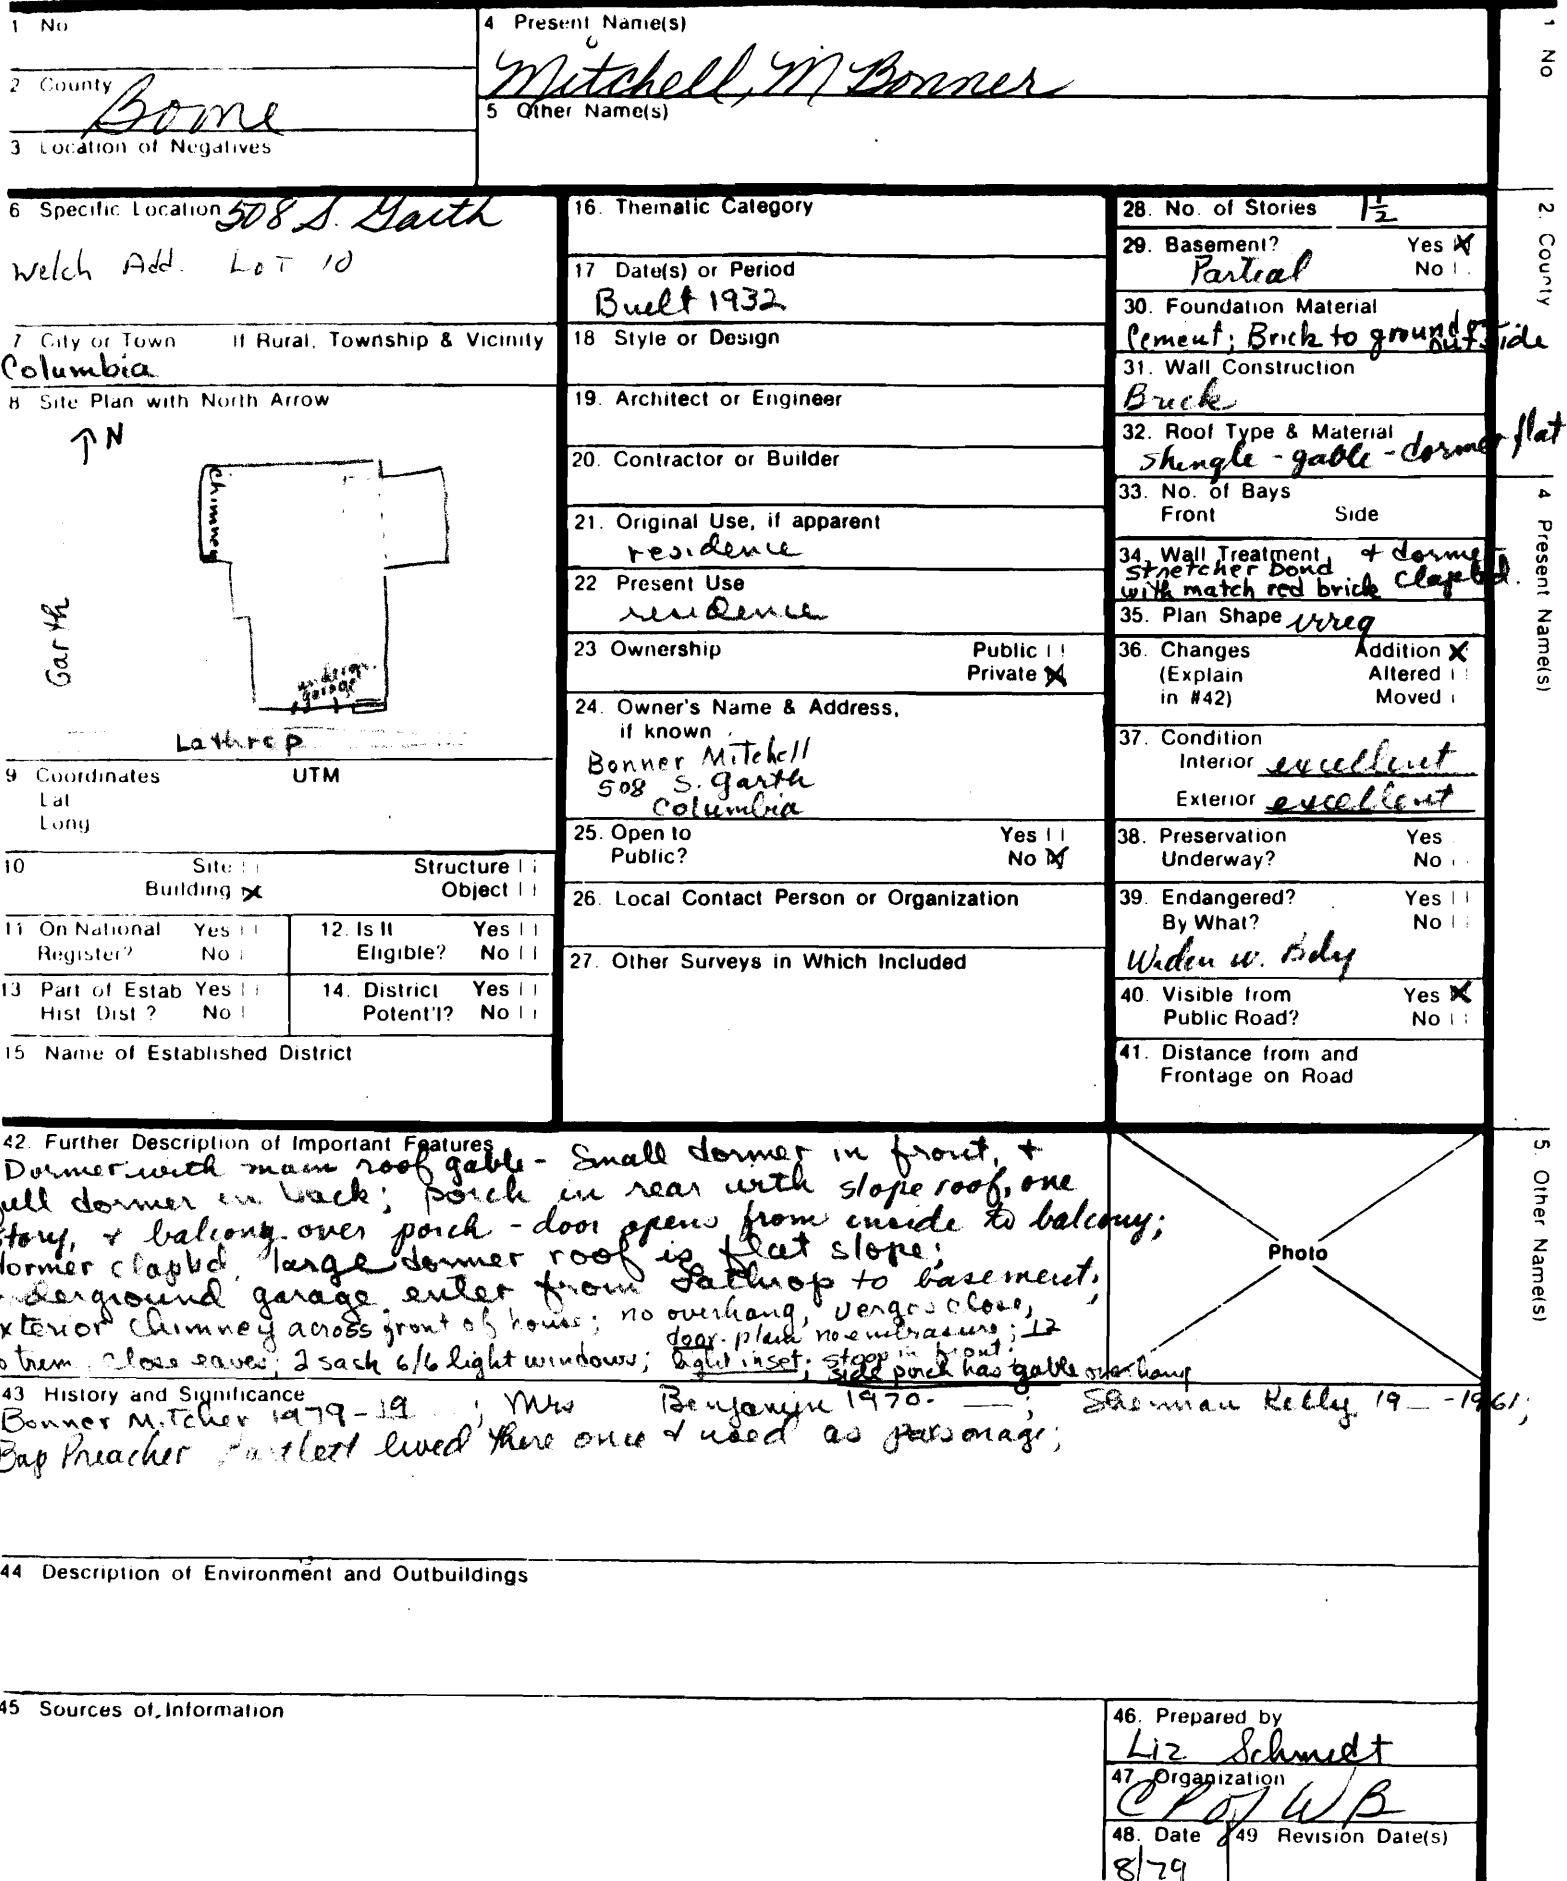 1 No
4 Present Name(s)
Mitchell, M Bonner
2 County
Boone
5 Other Name(s)
3 Location of Negatives
6 Specific Location 508 S. Garth
Welch Add. LOT 10
7 City or Town If Rural, Township & Vicinity
Columbia
8 Site Plan with North Arrow
N
Chimney
Garth
undergr.
garage
Lathrop
9 Coordinates UTM
Lat
Long
10 Site
Structure
Building X
Object
11 On National Register? Yes No
12. Is It Eligible? Yes No
13 Part of Estab Hist Dist ? Yes No
14. District Potent'l? Yes No
15 Name of Established District
16. Thematic Category
17 Date(s) or Period
Built 1932
18 Style or Design
19. Architect or Engineer
20. Contractor or Builder
21. Original Use, if apparent
residence
22 Present Use
residence
23 Ownership Public
Private X
24. Owner's Name & Address,
if known
Bonner Mitchell
508 S. Garth
Columbia
25. Open to Yes
Public? No X
26. Local Contact Person or Organization
27. Other Surveys in Which Included
28. No. of Stories 1½
29. Basement? Yes X
Partial No
30. Foundation Material
Cement; Brick to ground outside
31. Wall Construction
Brick
32. Roof Type & Material
Shingle - gable - dormer flat
33. No. of Bays
Front Side
34. Wall Treatment + dormer
stretcher bond clapbd.
with match red brick
35. Plan Shape irreg
36. Changes Addition X
(Explain Altered
in #42) Moved
37. Condition
Interior excellent
Exterior excellent
38. Preservation Yes
Underway? No
39. Endangered? Yes
By What? No
Widen w. Bdy
40. Visible from Yes X
Public Road? No
41. Distance from and
Frontage on Road
42. Further Description of Important Features
Dormer with main roof gable - Small dormer in front, +
full dormer in back; porch in rear with slope roof, one
story, + balcony over porch - door opens from inside to balcony;
dormer clapbd, large dormer roof is flat slope;
underground garage enter from Lathrop to basement;
exterior Chimney across front of house; no overhang, verges close,
door plain no embrasure; 12
no trim close eaves; 2 sash 6/6 light windows; light inset; stoop in front;
side porch has gable overhang
Photo
43 History and Significance
Bonner Mitchel 1979-19 ; Mrs Benjamin 1970- —; Sherman Kelly 19_ -1961;
Bap Preacher Bartlett lived there once & used as parsonage;
44 Description of Environment and Outbuildings
45 Sources of Information
46. Prepared by
Liz Schmidt
47. Organization
C P of W B
48. Date 49 Revision Date(s)
8/79
1 No
2. County
4 Present Name(s)
5. Other Name(s)